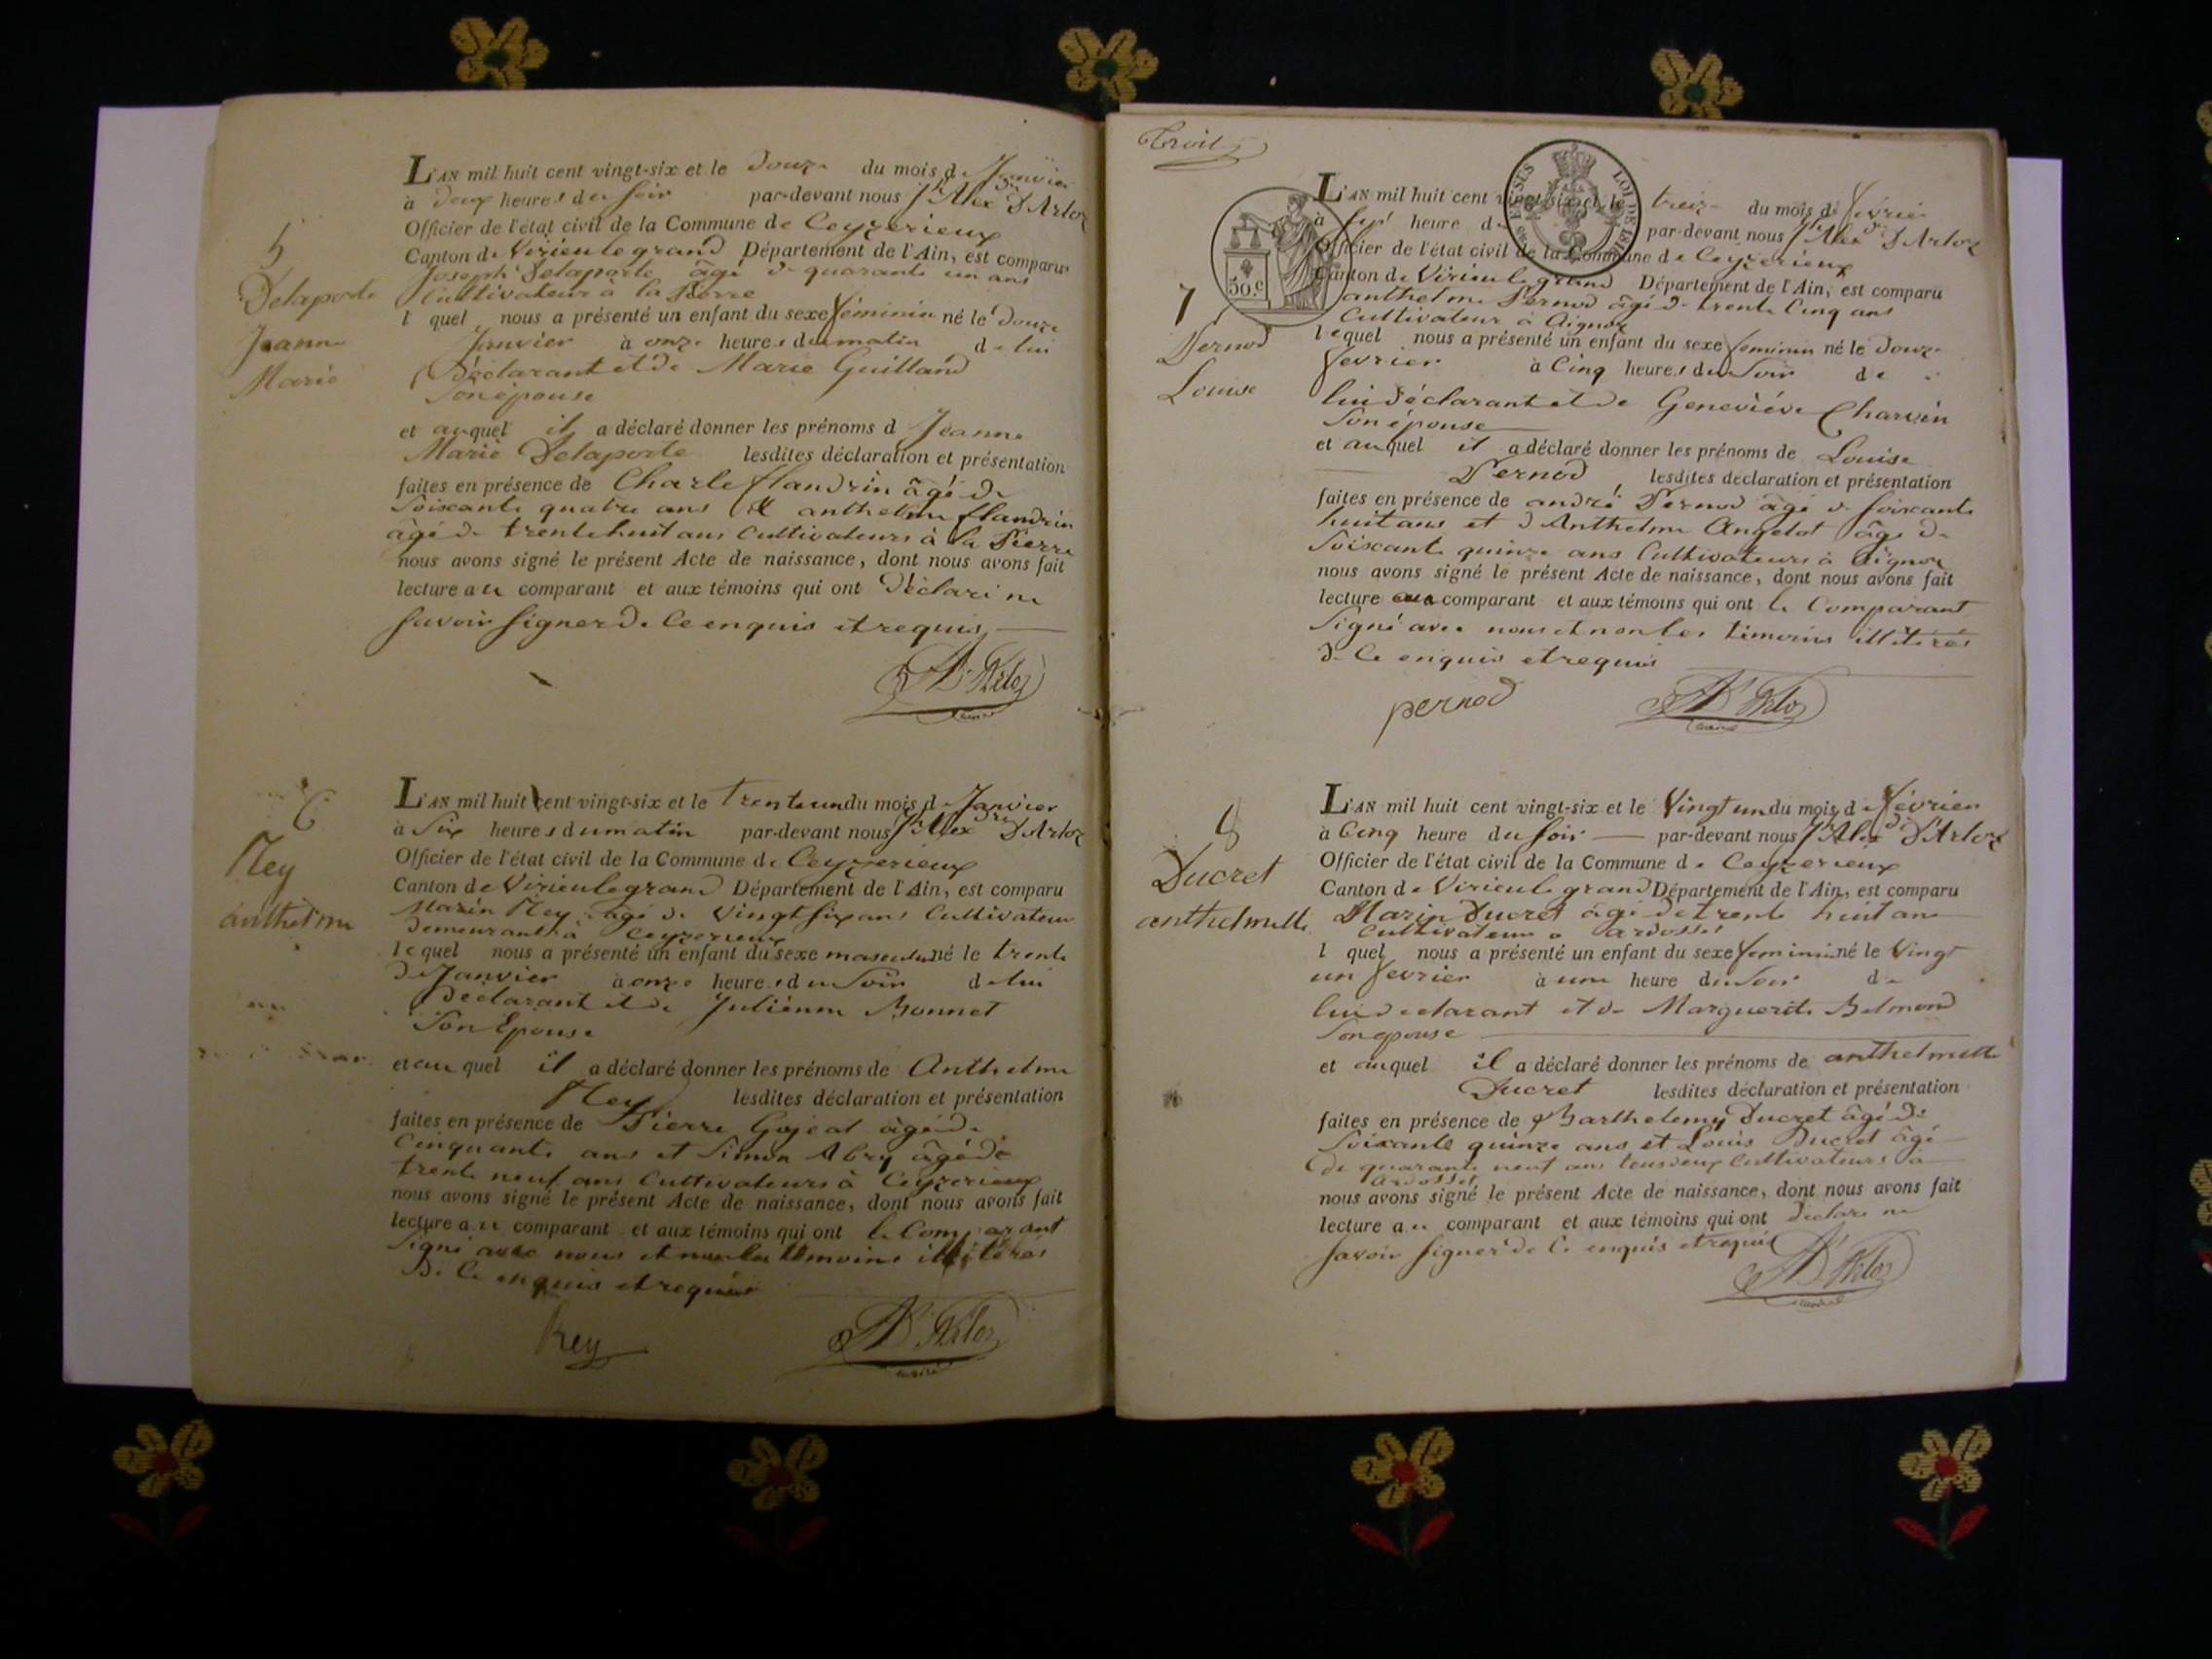 5
Delaporte
Jeanne
Marie
L'AN mil huit cent vingt-six et le douze du mois de Janvier
à deux heures du soir par-devant nous Jh Alex dre D'Arloz
Officier de l'état civil de la Commune de Ceyzerieux
Canton de Virieulegrand Département de l'Ain, est comparu
Joseph Delaporte âgé de quarante un ans
Cultivateur à la Pierre
l quel nous a présenté un enfant du sexe féminin né le douze
Janvier à onze heures du matin de lui
Déclarant et de Marie Guilland
Son épouse
et auquel il a déclaré donner les prénoms d Jeanne
Marie Delaporte lesdites déclaration et présentation
faites en présence de Charle flandrin âgé de
Soixante quatre ans & anthelme flandrin
âgé de trente huit ans Cultivateurs à la Pierre
nous avons signé le présent Acte de naissance, dont nous avons fait
lecture au comparant et aux témoins qui ont déclaré ne
Savoir signer de ce enquis et requis
D'Arloz
6
Rey
anthelme
L'AN mil huit cent vingt-six et le trente un du mois de Janvier
à Six heures du matin par-devant nous Jh Alex dre D'Arloz
Officier de l'état civil de la Commune de Ceyzerieux
Canton de Virieulegrand Département de l'Ain, est comparu
Marin Rey âgé de Vingt six ans Cultivateur
Demeurant à Ceyzerieux
lequel nous a présenté un enfant du sexe masculin né le trente
de Janvier à onze heures du Soir de lui
Déclarant et de Julienne Bonnet
Son Epouse
et au quel il a déclaré donner les prénoms de Anthelme
Rey lesdites déclaration et présentation
faites en présence de Pierre Gojeat âgé de
Cinquante ans et Simon Abry âgé de
trente neuf ans Cultivateurs à Ceyzerieux
nous avons signé le présent Acte de naissance, dont nous avons fait
lecture au comparant et aux témoins qui ont le Comparant
Signé avec nous et non les témoins illitérés
De Ce enquis et requis
Rey D'Arloz
Troit
30.c
LOI DE 1816
7
Pernod
Louise
L'AN mil huit cent vingt-six et le treize du mois de février
à sept heure d par-devant nous Jh Alex dre D'Arloz
Officier de l'état civil de la Commune de Ceyzerieux
Canton de Virieulegrand Département de l'Ain, est comparu
anthelme Pernod âgé de trente Cinq ans
Cultivateur à Aignoz
lequel nous a présenté un enfant du sexe feminin né le douze
fevrier à Cinq heures du Soir de
lui déclarant et de Geneviéve Charvin
Son épouse
et au quel il a déclaré donner les prénoms de Louise
Pernod lesdites declaration et présentation
faites en présence de andré Pernod âgé de soixante
huit ans et d'Anthelme Angelot âgé de
Soixante quinze ans Cultivateurs à Aignoz
nous avons signé le présent Acte de naissance, dont nous avons fait
lecture au comparant et aux témoins qui ont le Comparant
Signé avec nous et non les témoins illitérés
de Ce enquis et requis
pernod D'Arloz
8
Ducret
anthelmette
L'AN mil huit cent vingt-six et le Vingt un du mois de février
à Cinq heure du soir par-devant nous Jh Alex dre D'Arloz
Officier de l'état civil de la Commune de Ceyzerieux
Canton de Virieulegrand Département de l'Ain, est comparu
Marin Ducret âgé de trente huit ans
Cultivateur a ardosset
l quel nous a présenté un enfant du sexe feminin né le Vingt
un fevrier à une heure du Soir de
lui declarant et de Marguerite Belmond
Son epouse
et auquel il a déclaré donner les prénoms de anthelmette
Ducret lesdites déclaration et présentation
faites en présence de Barthelemy Ducret âgé de
Soixante quinze ans et Louis Ducret âgé
de quarante neuf ans tous deux Cultivateurs à
ardosset
nous avons signé le présent Acte de naissance, dont nous avons fait
lecture au comparant et aux témoins qui ont déclaré ne
savoir signer de Ce enquis et requis
D'Arloz